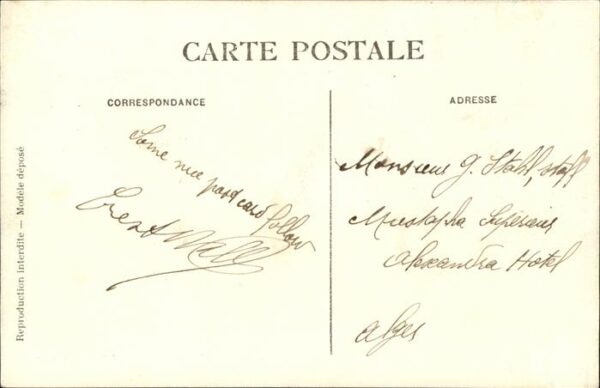 CARTE POSTALE
CORRESPONDANCE
ADRESSE
Some nice postcard follow
Monsieur G. Stahl, staff
Mustapha Supérieur
Alexandra Hotel
Alger
Reproduction interdite — Modèle déposé